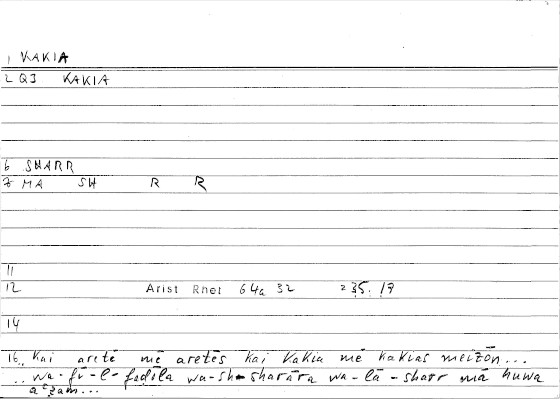 1 KAKIA
2 QJ KAKIA
6 SHARR
7 MA SH R R
11
12 Arist Rhet 64a 32 235.17
14
16 .. kai aretē mē aretēs kai kakia mē kakias meizōn...
.. wa-fī-l-faḍīla wa-sh-sharāra wa-lā-sharr mā huwa
aʿẓam...